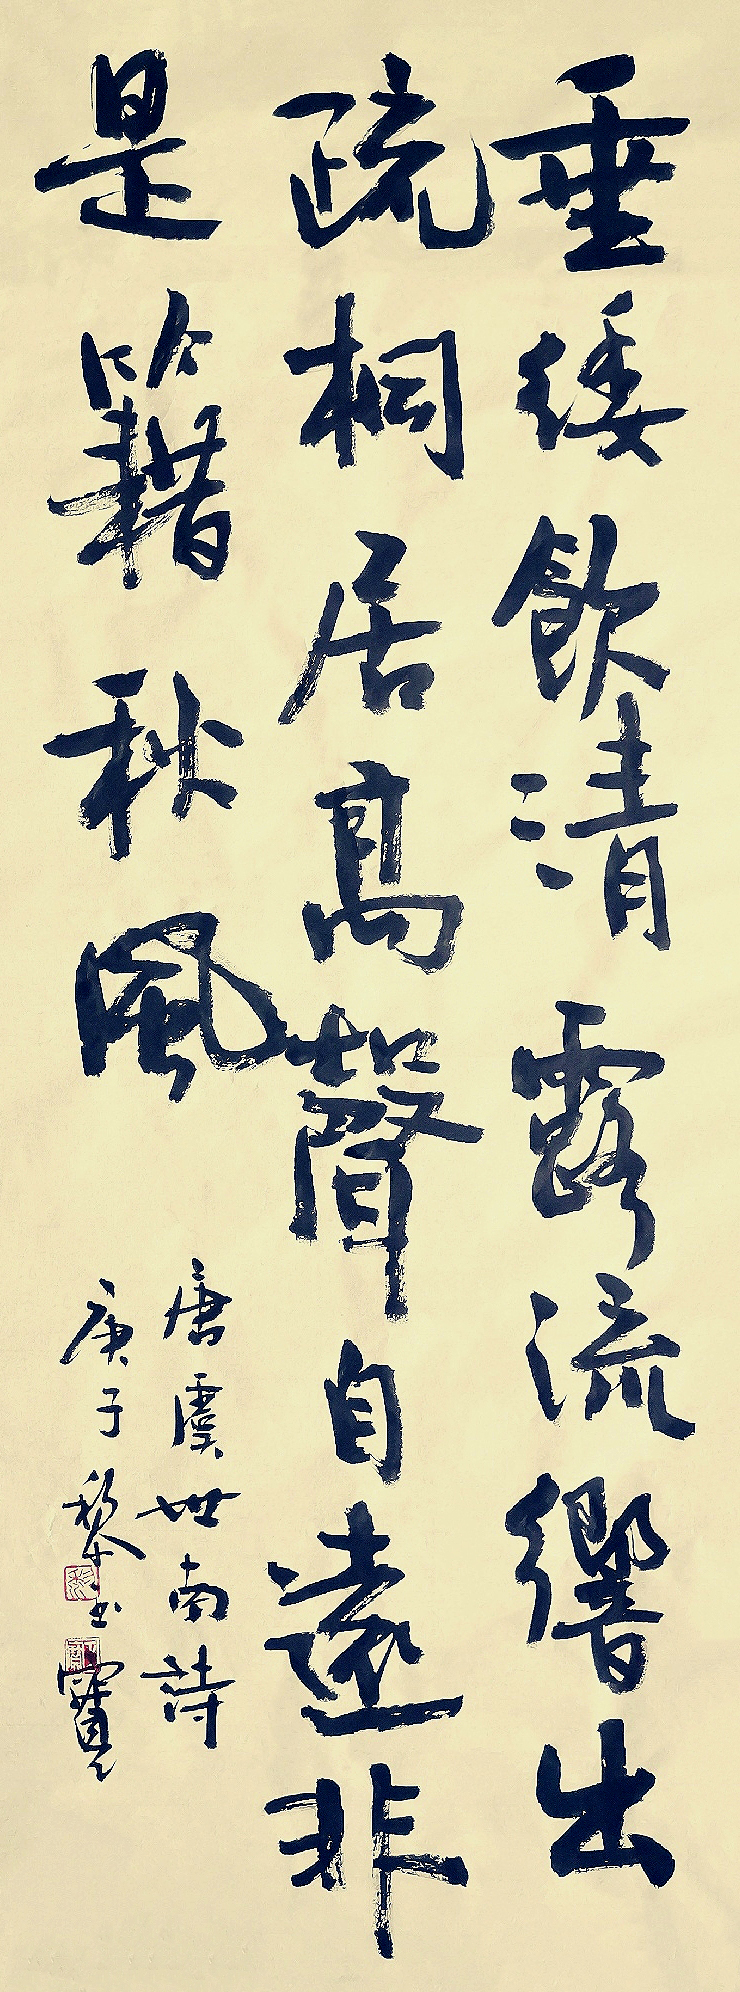 垂緌飲清露流響出
疏桐居高聲自遠非
是籍秋風
唐虞世南詩
庚子